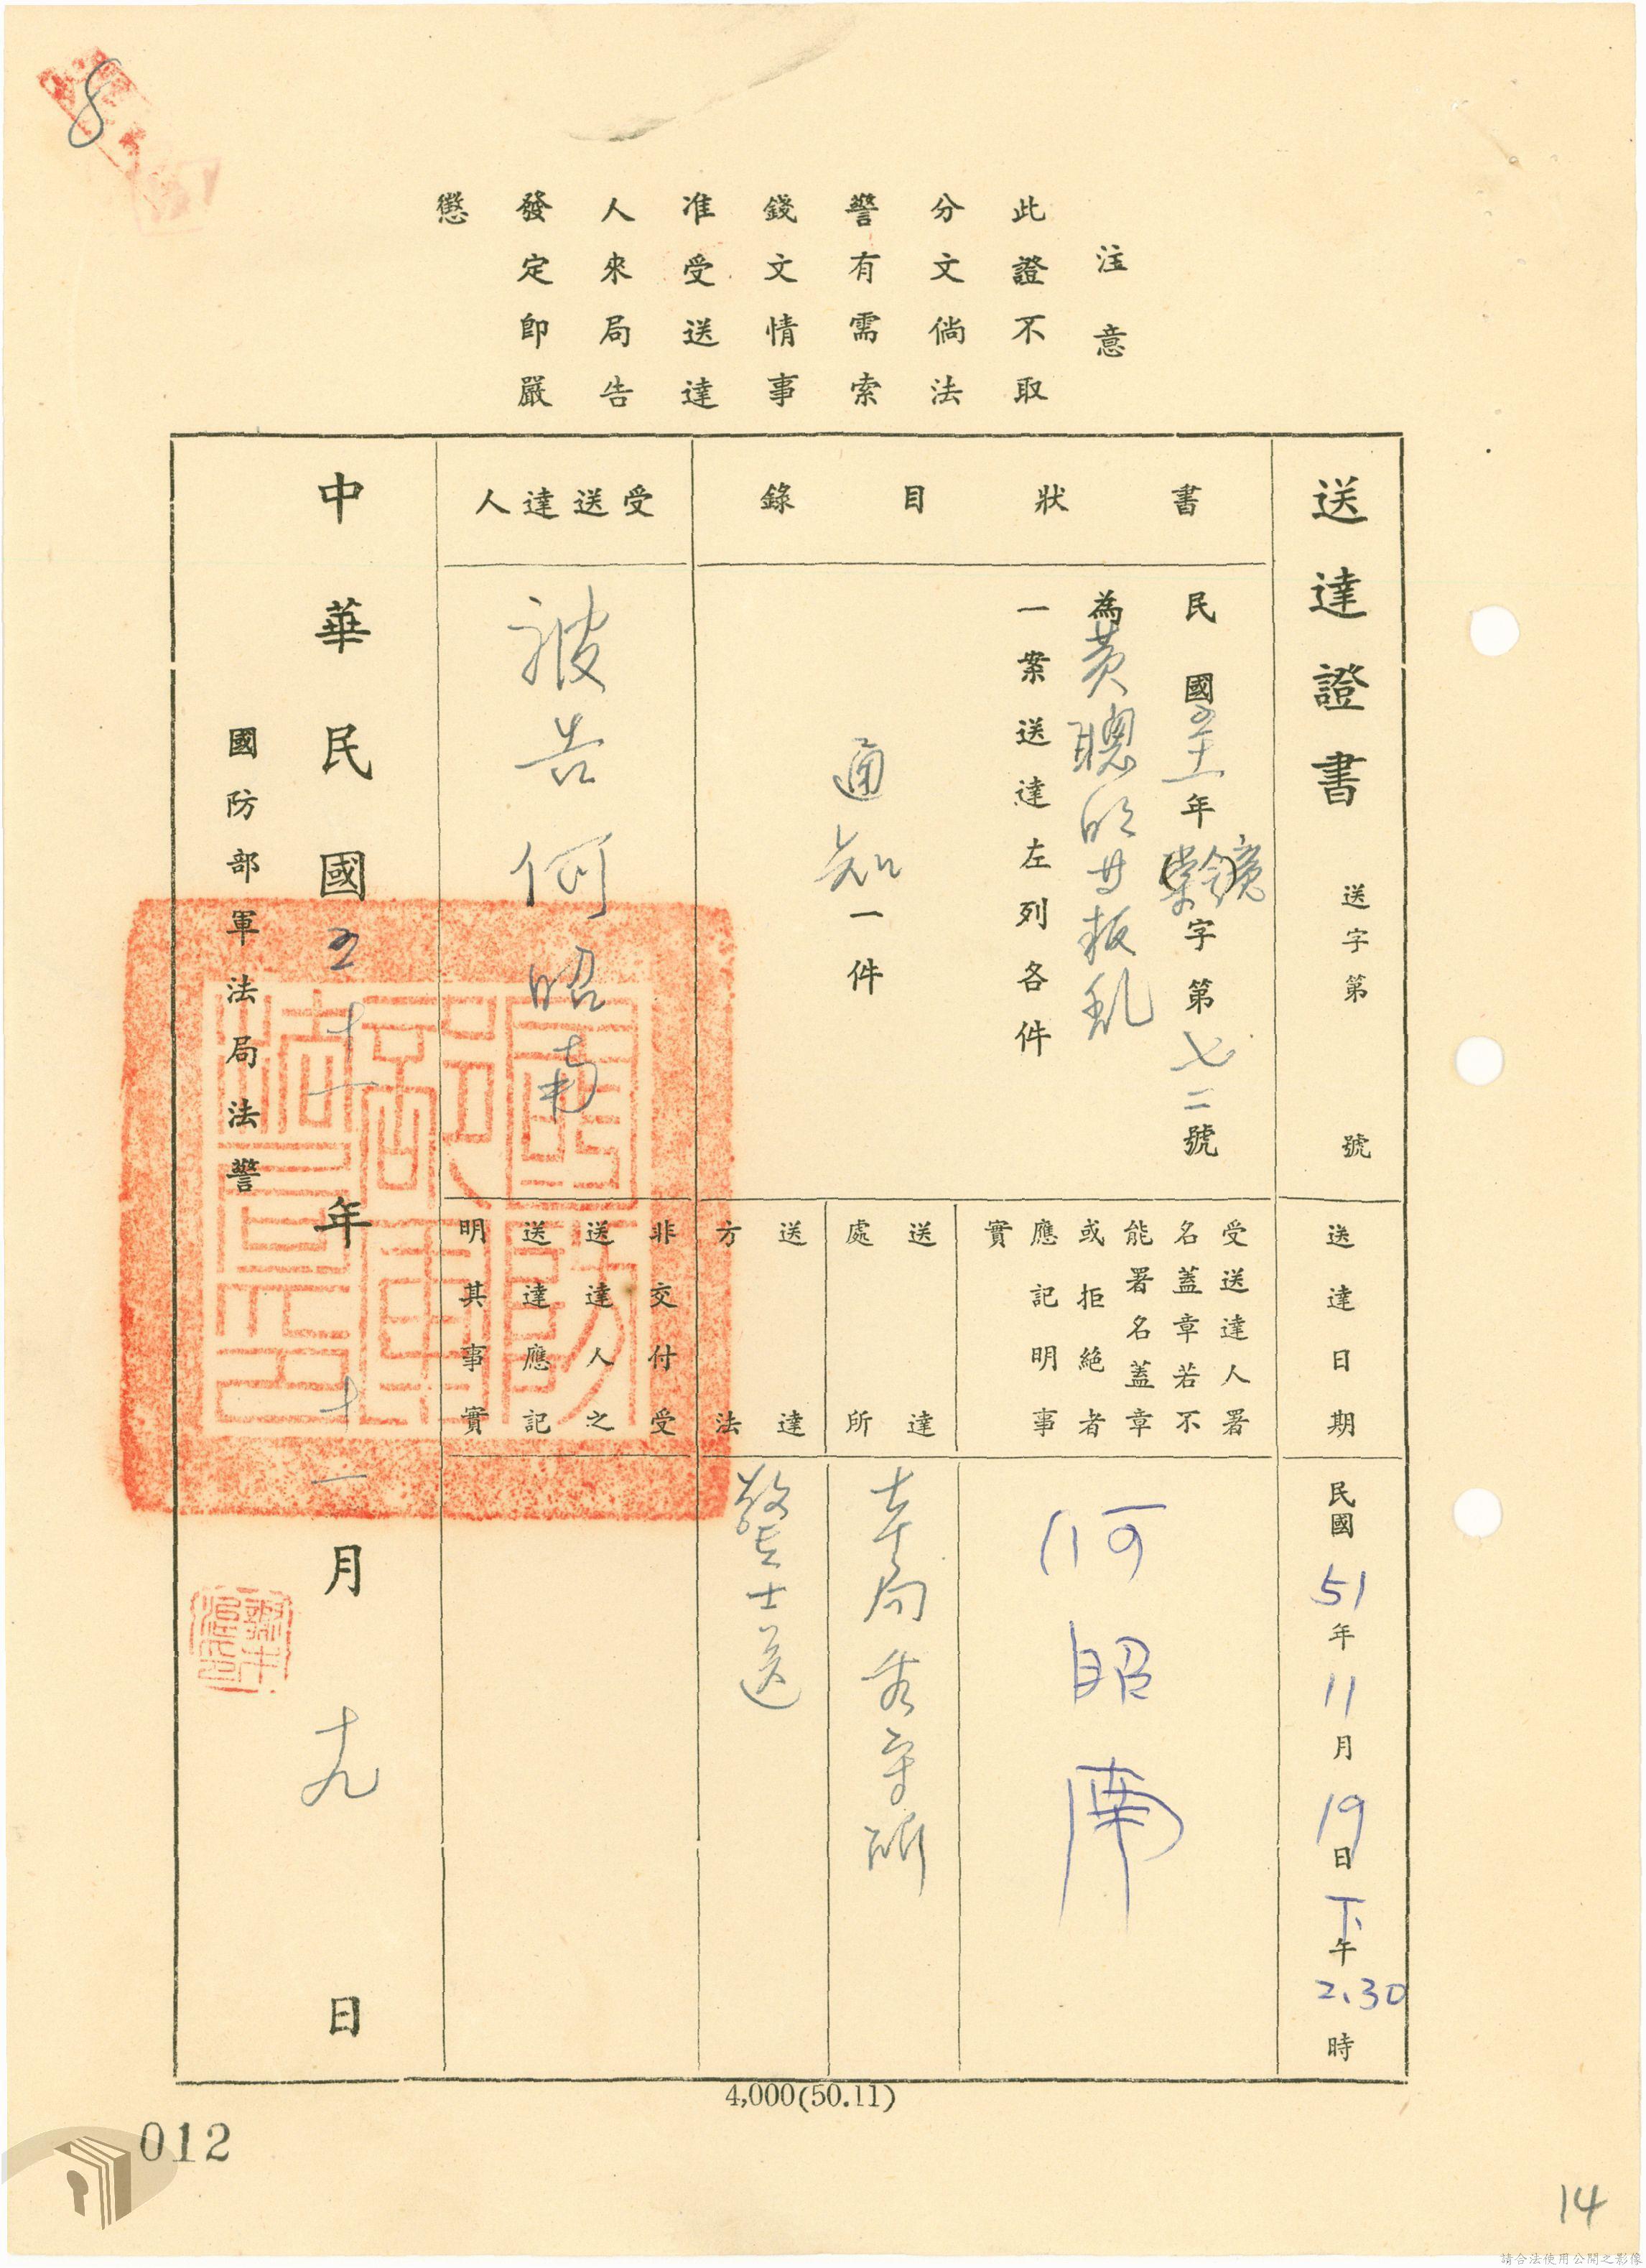 8
注意
此證不取
分文倘法
警有需索
錢文情事
准受送達
人來局告
發定即嚴
懲
送達證書 送字第 號
書狀目錄
民國五十一年(棠鏡)字第七二號
為黃聰明等叛亂
一案送達左列各件
通知一件
受送達人
被告何昭南
送達日期
民國51年11月19日下午2.30時
受送達人署
名蓋章若不
能署名蓋章
或拒絕者
應記明事
實
何昭南
送達
處所
本局看守所
送達
方法
警士送
非交付受
送達人之
送達應記
明其事實
中華民國五十一年十一月十九日
國防部軍法局法警
4,000(50.11)
012
14
請合法使用公開之影像